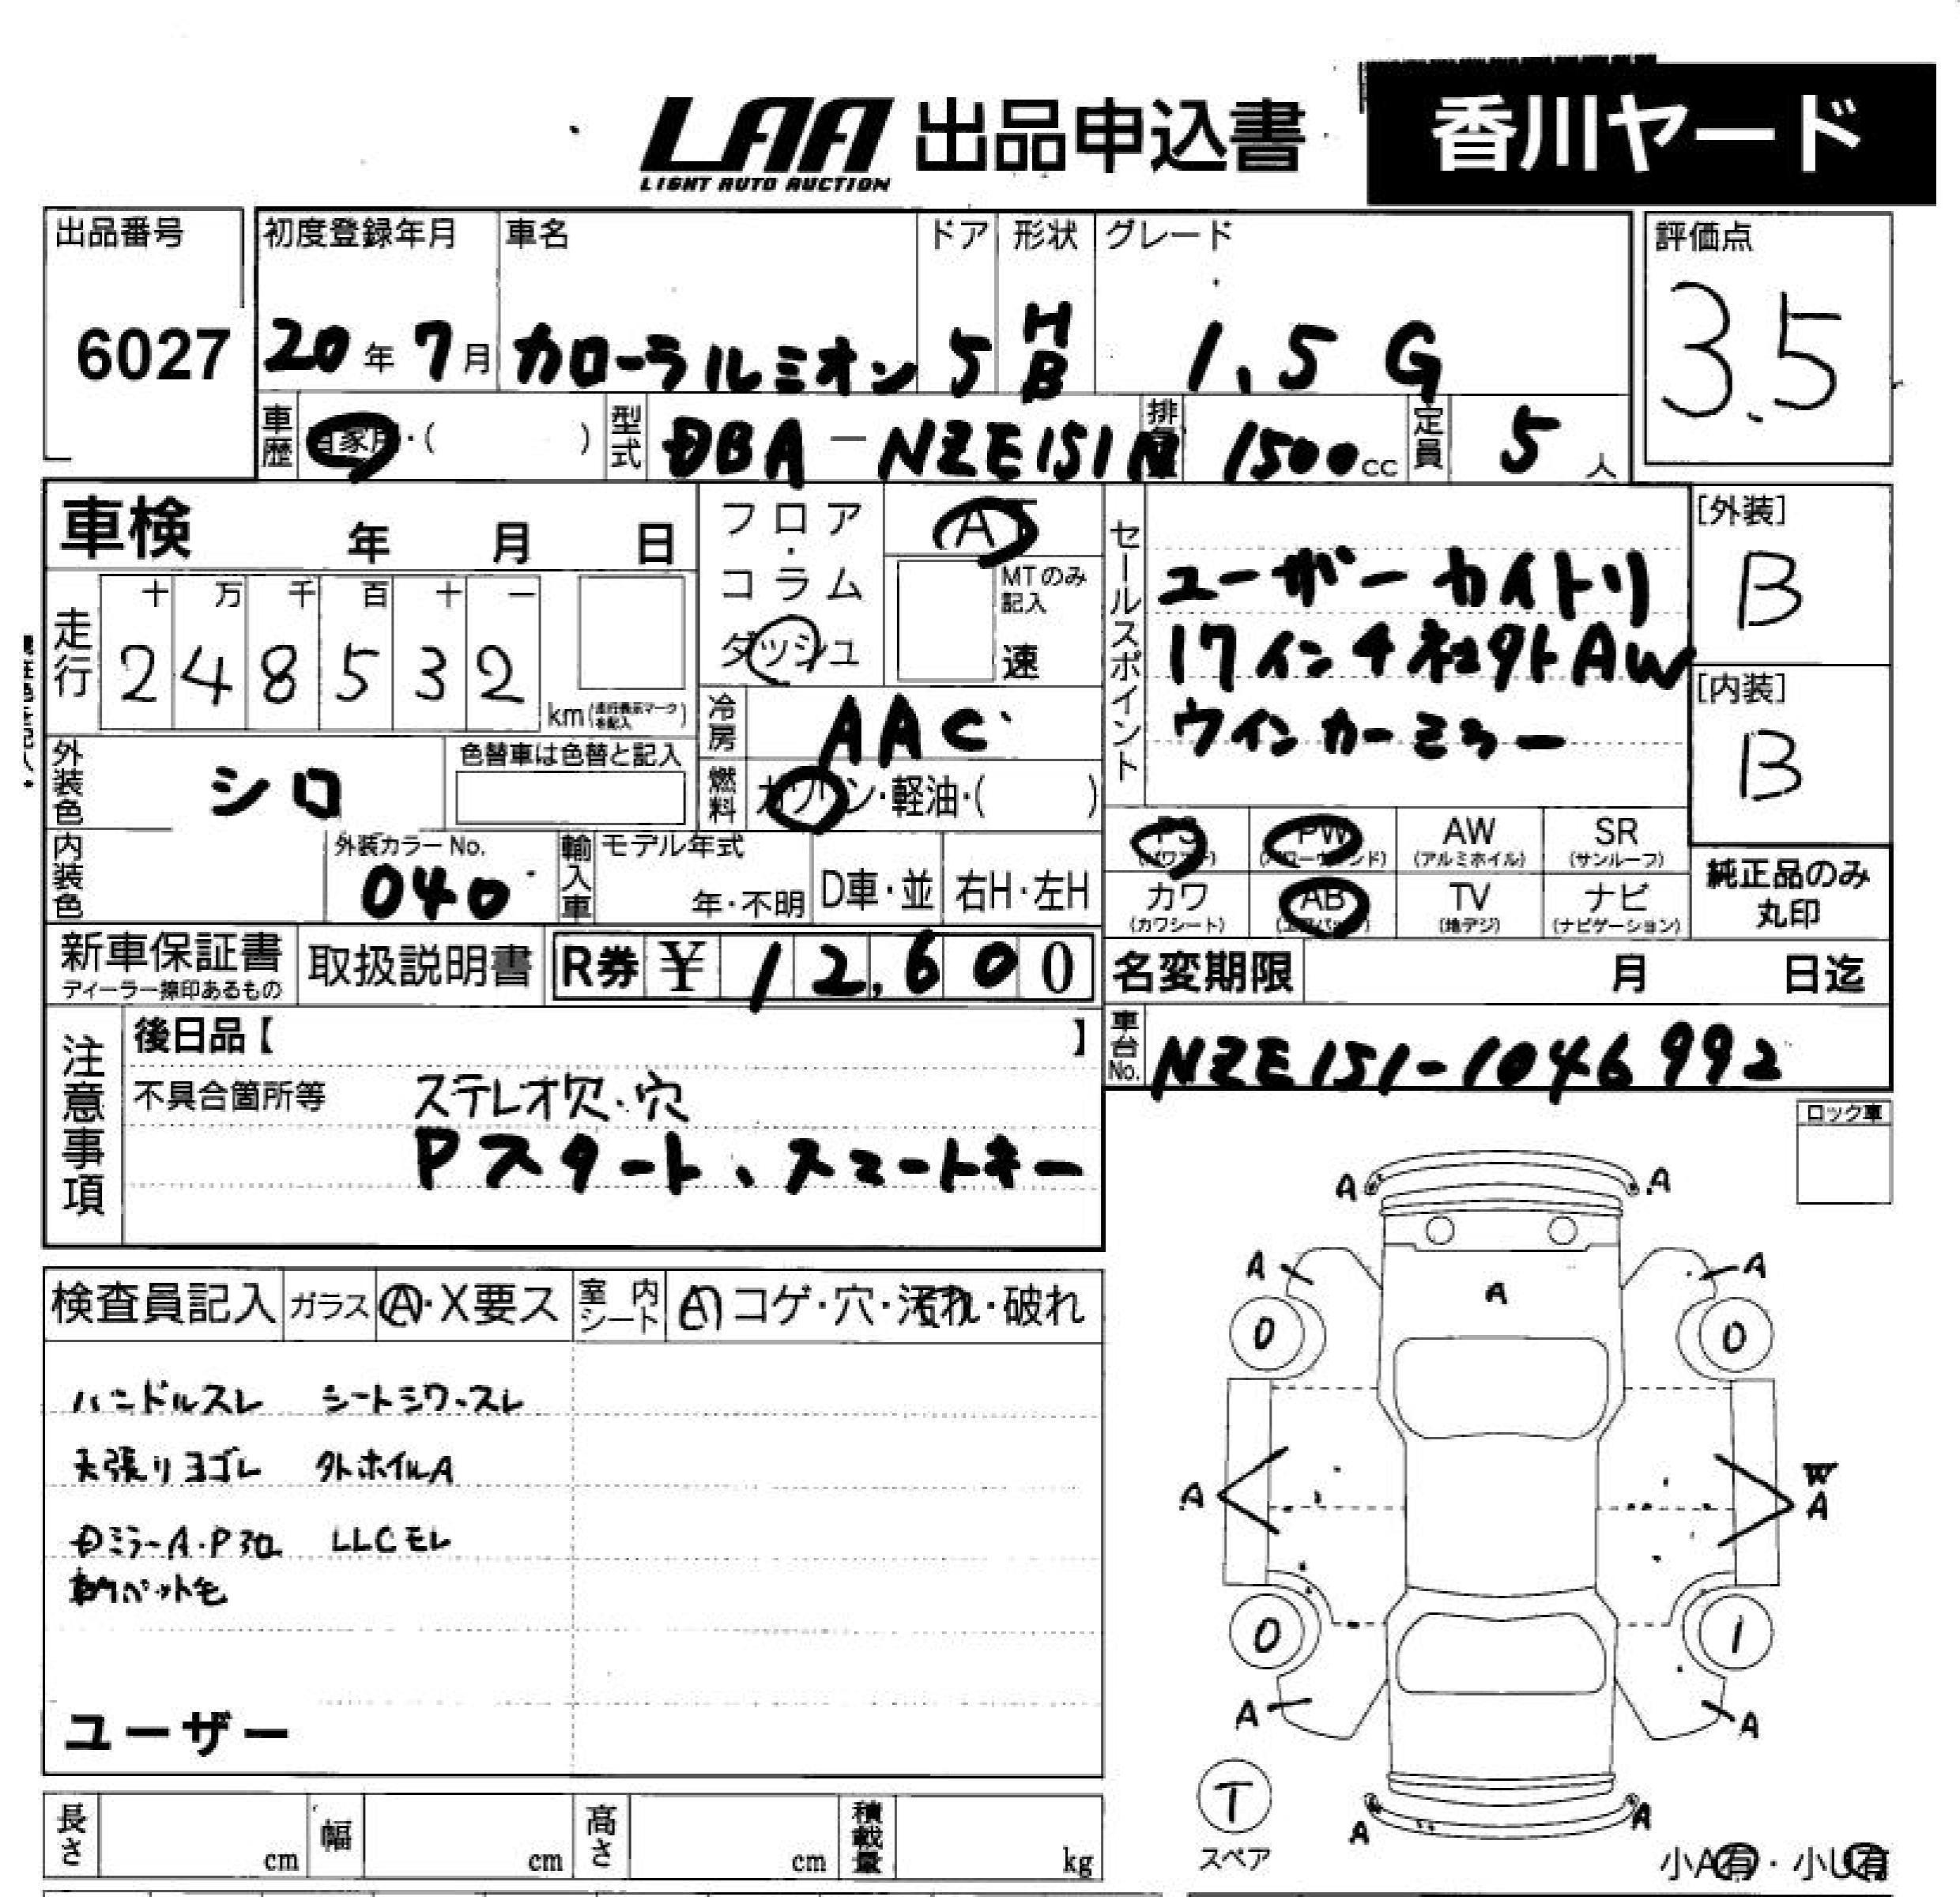 LAA 出品申込書 香川ヤード
LIGHT AUTO AUCTION
出品番号 初度登録年月 車名 ドア 形状 グレード 評価点
6027 20年7月 カローラルミオン 5 HB 1.5 G 3.5
車歴 自家用・( ) 型式 DBA-NZE151N 排気 1500cc 定員 5人
車検 年 月 日
フロア・コラム ダッシュ
AT
MTのみ記入
速
走行 十 万 千 百 十 一
2 4 8 5 3 2 km(走行表示マークを記入)
冷房 AAC
外装色 シロ 色替車は色替と記入
燃料 ガソリン・軽油・( )
内装色 外装カラーNo. 040
輸入車 モデル年式 年・不明 D車・並 右H・左H
セールスポイント
ユーザーカイトリ
17インチ社外AW
ウインカーミラー
[外装] B
[内装] B
PS PW AW SR
(パワステ) (パワーウインド) (アルミホイル) (サンルーフ)
カワ AB TV ナビ
(カワシート) (エアバック) (地デジ) (ナビゲーション)
純正品のみ
丸印
新車保証書 取扱説明書 R券 ¥ 12,600
ディーラー捺印あるもの
名変期限 月 日迄
車台No. NZE151-1046992
注意事項
後日品【 】
不具合箇所等 ステレオ欠・穴
Pスタート、スマートキー
ロック車
検査員記入 ガラス Ⓐ・X要ス 室内シート Ⓐ コゲ・穴・汚れ・破れ
ハンドルスレ シートシワ・スレ
天張りヨゴレ 外ホイルA
ミラーA・P LLCモレ
ペット毛
ユーザー
A A
A A
A
0 0
A W
A
0 1
A A
T
スペア
A A
小A有・小U有
長さ cm 幅 cm 高さ cm 積載量 kg